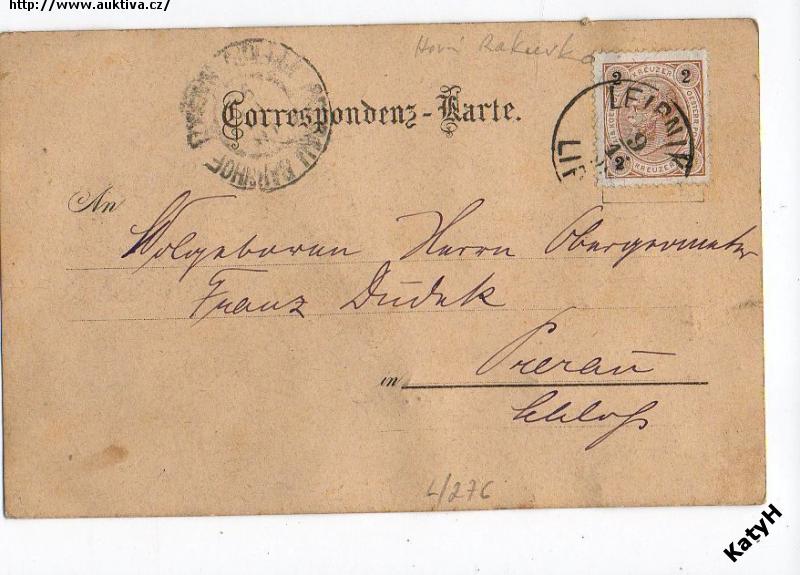 http://www.auktiva.cz/
Correspondenz-Karte.
2 KREUZER 2
LEIPNIK
9
LIP
2 KREUZER
An
Wolgeboren Herrn Obergeometer
Franz Dudek
in Prerau
Schloß
L/276
KatyH